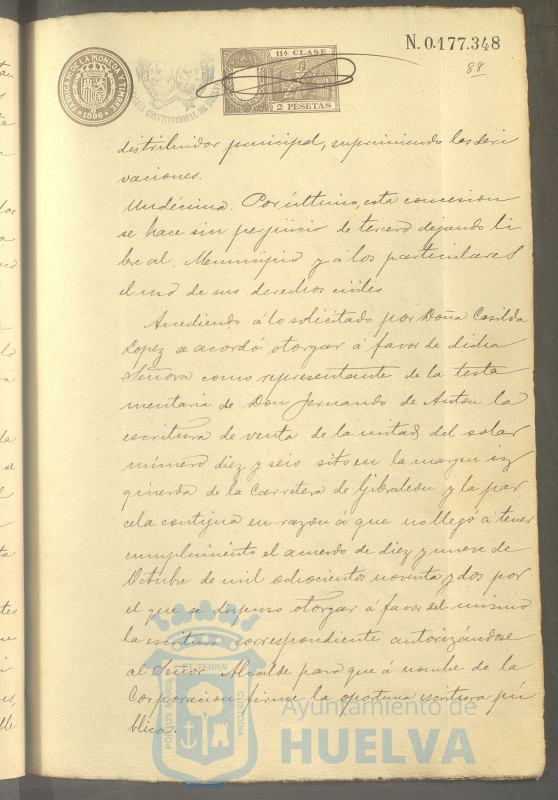 N. 0.177.348
88
FABRICA N. DE LA MONEDA Y TIMBRE
1898
11ª CLASE
2 PESETAS
CONSTITUCIONAL DE
distribuidor principal, suprimiendo las deri
vaciones.
Undécima. Por último, esta concesion
se hace sin perjuicio de tercero dejando li
bre al Municipio y a los particulares
el uso de sus derechos civiles
Accediendo á lo solicitado por Doña Casilda
Lopez se acordó otorgar á favor de dicha
Señora como representante de la testa
mentaria de Don Fernando de Anton la
escritura de venta de la mitad del solar
número diez y seis sito en la margen iz
quierda de la Carretera de Gibraleon y la par
cela contigua en razon á que no llegó á tener
cumplimiento el acuerdo de diez y nueve de
Octubre de mil ochocientos noventa y dos por
el que se dispuso otorgar á favor del mismo
la escritura correspondiente autorizándose
al Señor Alcalde para que á nombre de la
Corporacion firme la oportuna escritura pú
blica.
PORTUS MARIS ET TERRÆ CUSTODIA
Ayuntamiento de
HUELVA